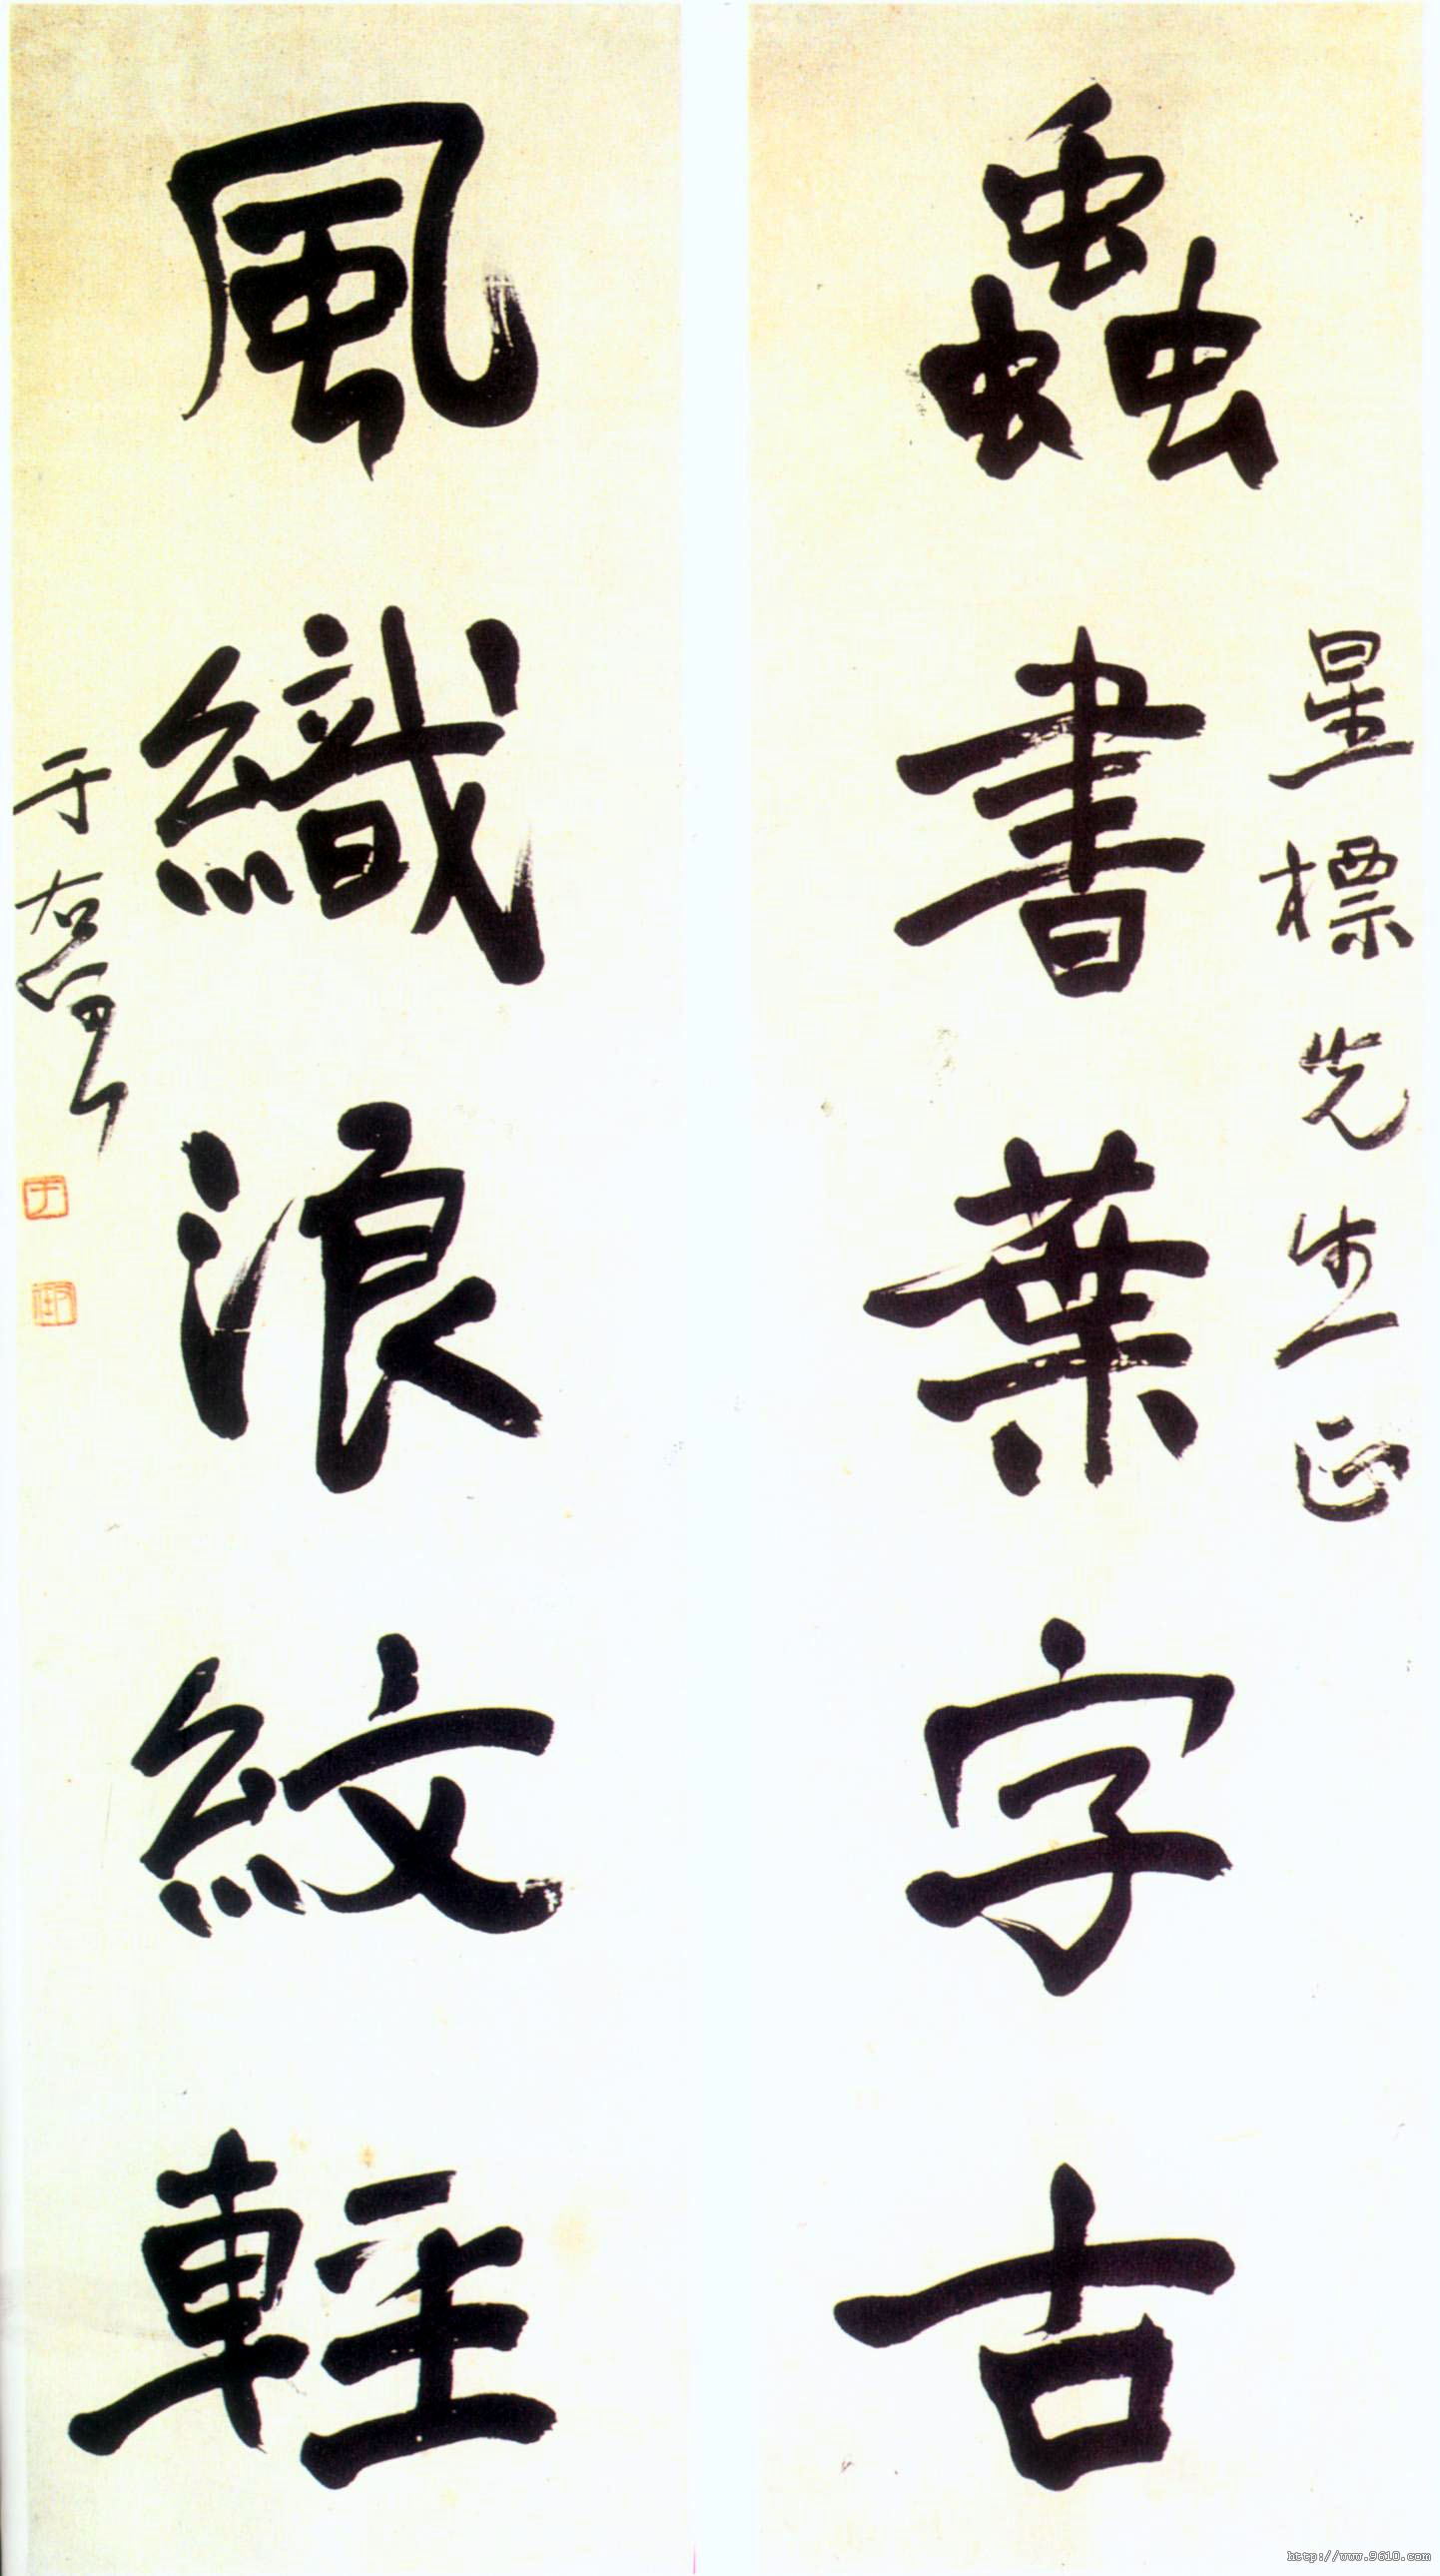 星標先生正
蟲書葉字古
風織浪紋輕
于右任
http://www.9610.com